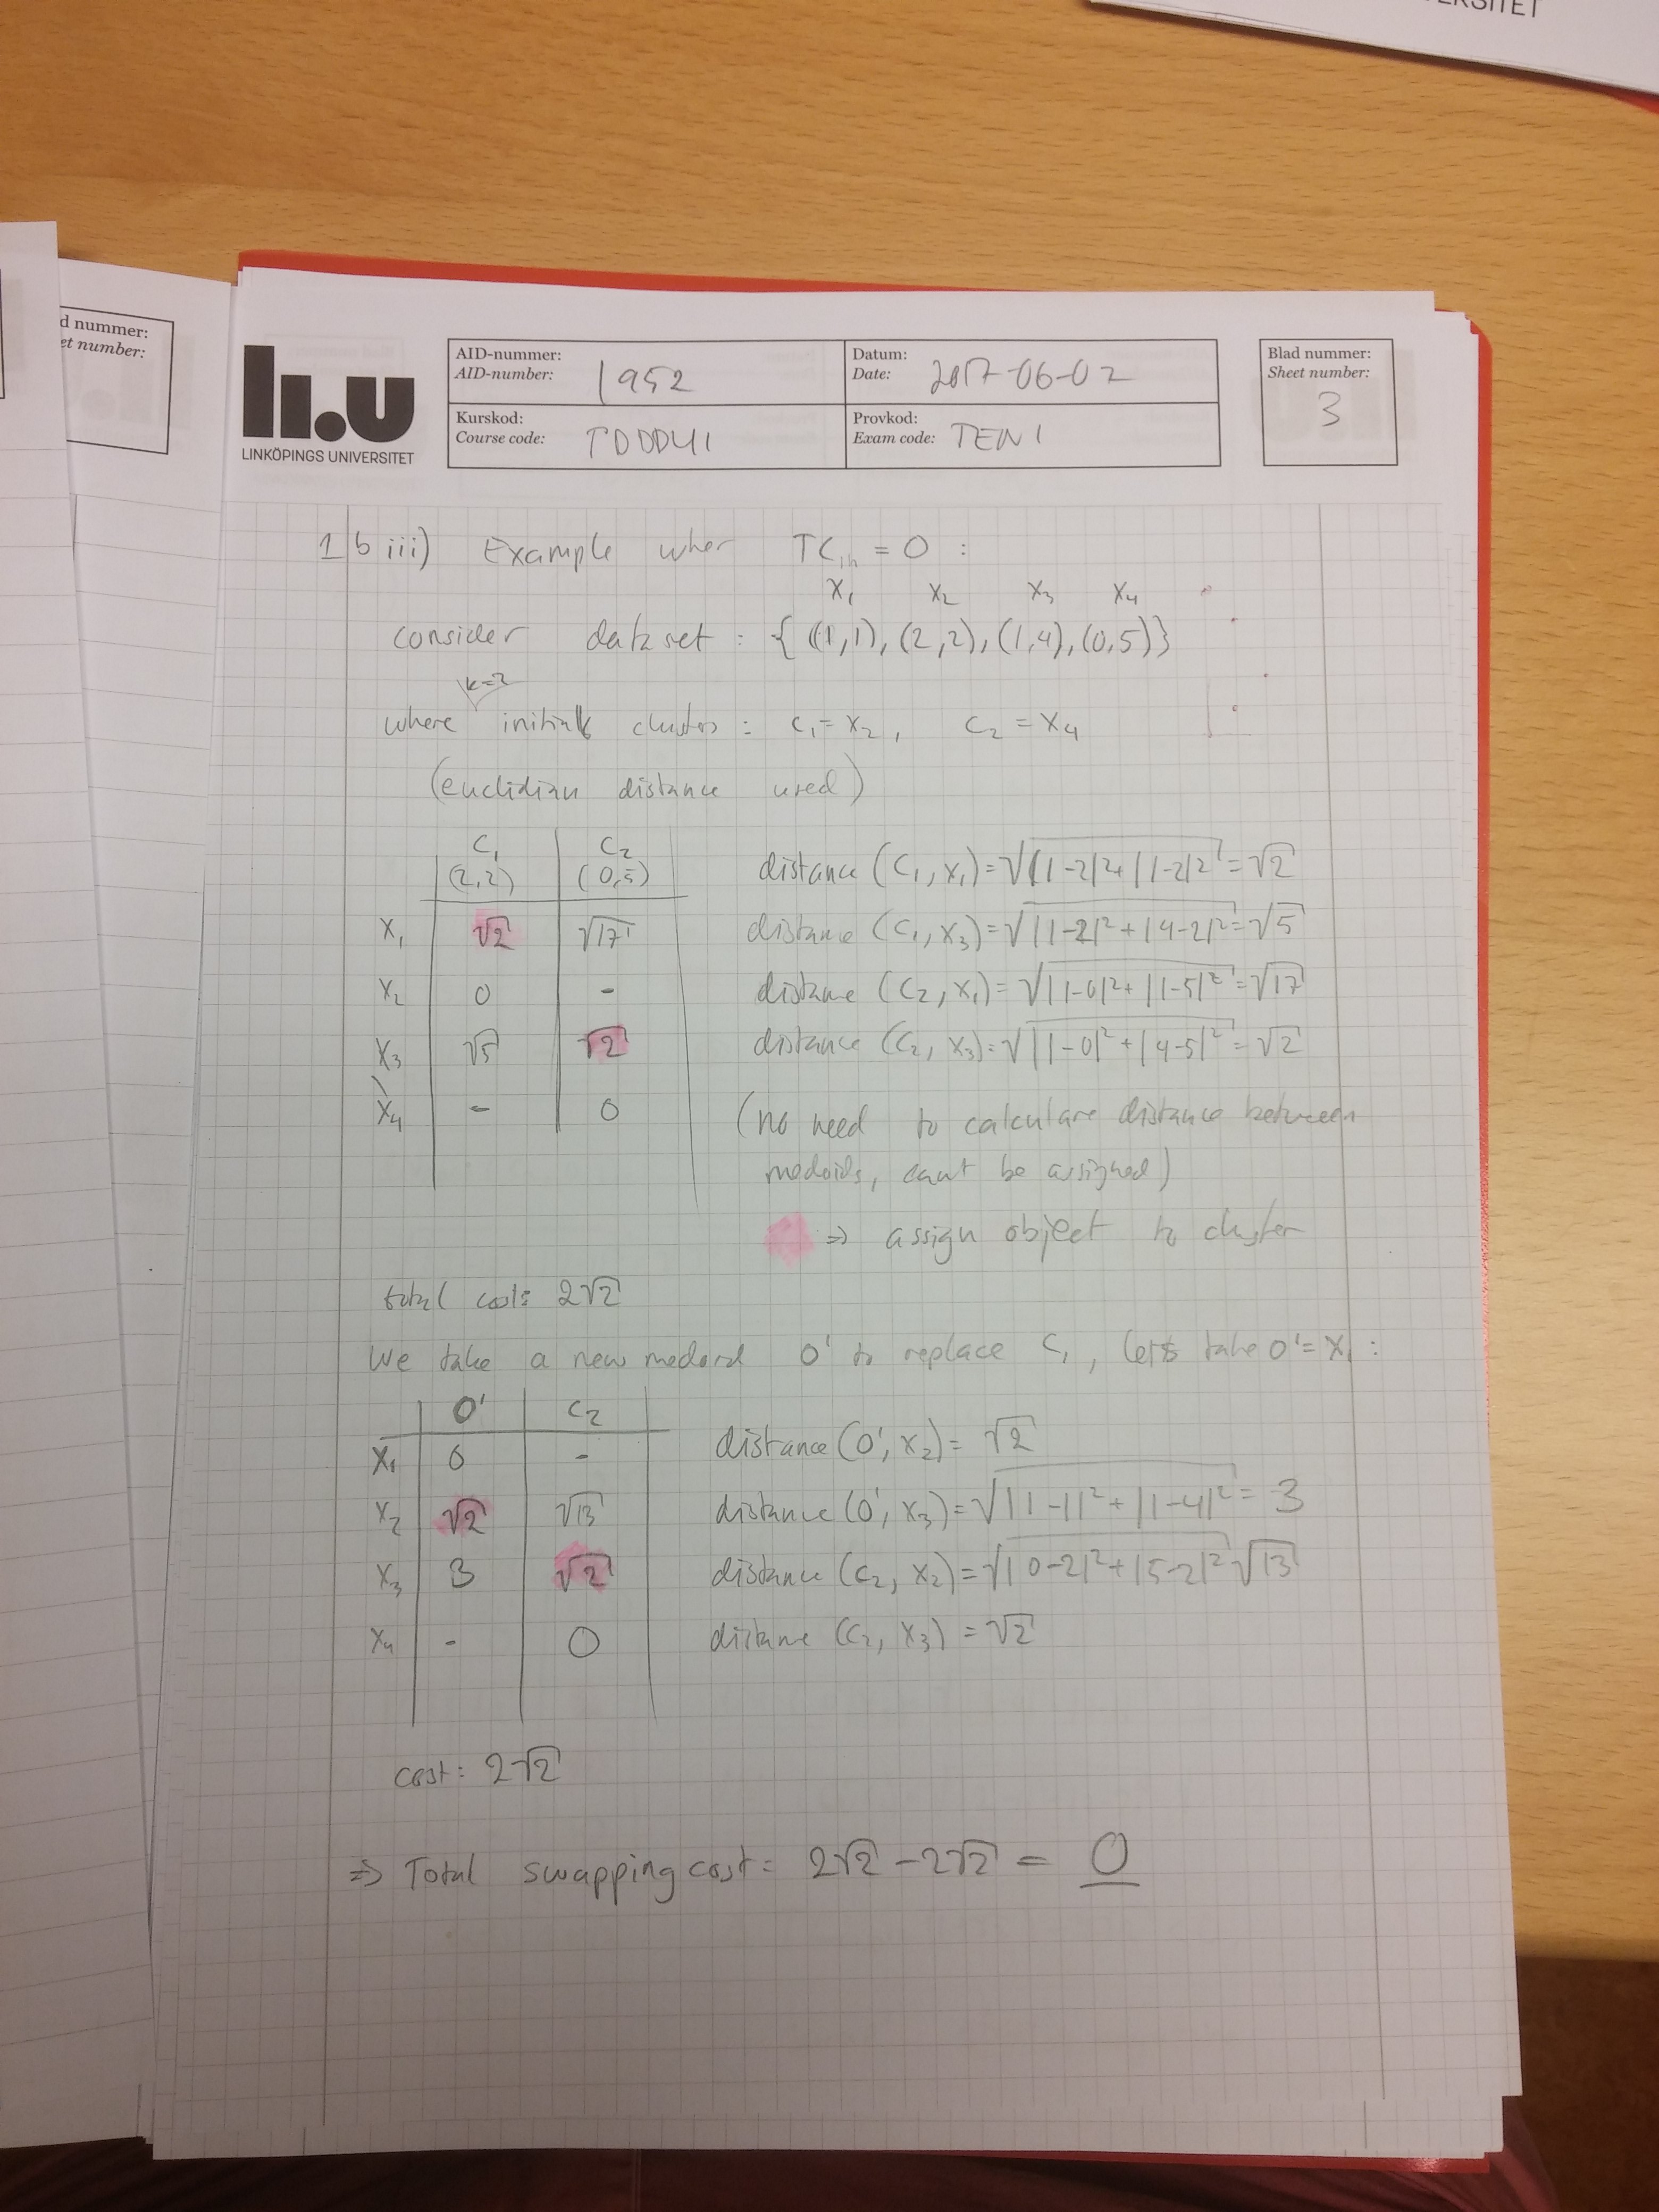 ERSITET
d nummer:
et number:
li.u
LINKÖPINGS UNIVERSITET
AID-nummer:
AID-number: 1952
Datum:
Date: 2017-06-02
Kurskod:
Course code: TDDD41
Provkod:
Exam code: TEN1
Blad nummer:
Sheet number:
3
1b iii) Example when TCih = 0 :
x₁ x₂ x₃ x₄
consider dataset : {(1,1), (2,2), (1,4), (0,5)}
k=2
where initial clusters : c₁ = x₂, c₂ = x₄
(euclidian distance used)
C₁ C₂
(2,2) (0,5)
x₁ √2 √17
x₂ 0 -
x₃ √5 √2
x₄ - 0
distance (C₁, x₁) = √|1-2|²+|1-2|² = √2
distance (C₁, x₃) = √|1-2|²+|4-2|² = √5
distane (C₂, x₁) = √|1-0|²+|1-5|² = √17
distance (C₂, x₃) = √|1-0|²+|4-5|² = √2
(no need to calculate distance between
medoids, cant be assigned)
⇒ assign object to cluster
total cost: 2√2
We take a new medoid O' to replace C₁, lets take O' = x₁ :
O' C₂
x₁ 0 -
x₂ √2 √13
x₃ 3 √2
x₄ - 0
distance (O', x₂) = √2
distance (O', x₃) = √|1-1|²+|1-4|² = 3
distance (C₂, x₂) = √|0-2|²+|5-2|² √13
distane (C₂, x₃) = √2
cost: 2√2
⇒ Total swapping cost: 2√2 - 2√2 = 0